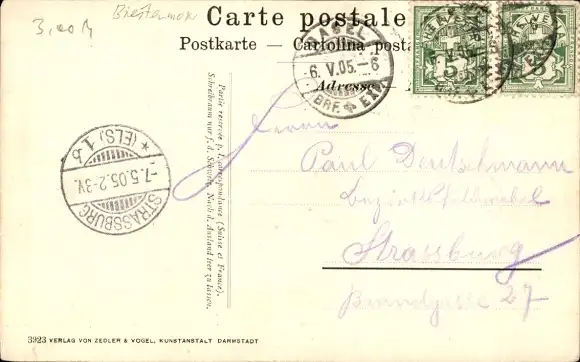 3,00 M Biestermonn
Carte postale
Postkarte — Cartolina posta
Adresse
BASEL
6. V.05.–6
BRF. EXP.
Partie réservée p. l. correspondance (Suisse et France).
Schreibraum nur f. d. Schweiz. Nach d. Ausland leer zu lassen.
* (ELS.) 1. b
-7.5.05.2-3V.
STRASSBURG
Herrn
Paul Deutschmann
Strassburg
Brandgasse 27
3923 VERLAG VON ZEDLER & VOGEL, KUNSTANSTALT DARMSTADT